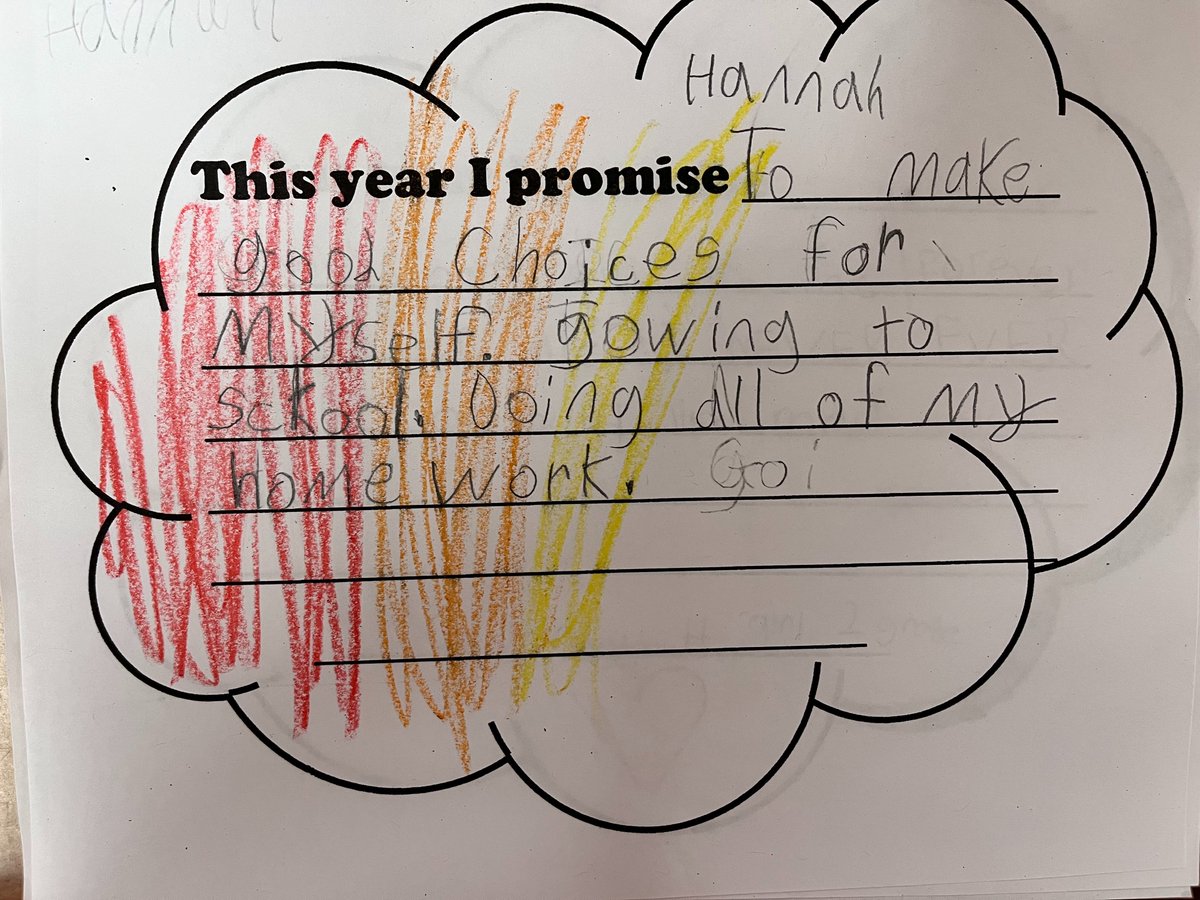 Hannah
Hannah
This year I promise To make
good Choices for
Myself. gowing to
sckool. Doing all of my
home work. Goi